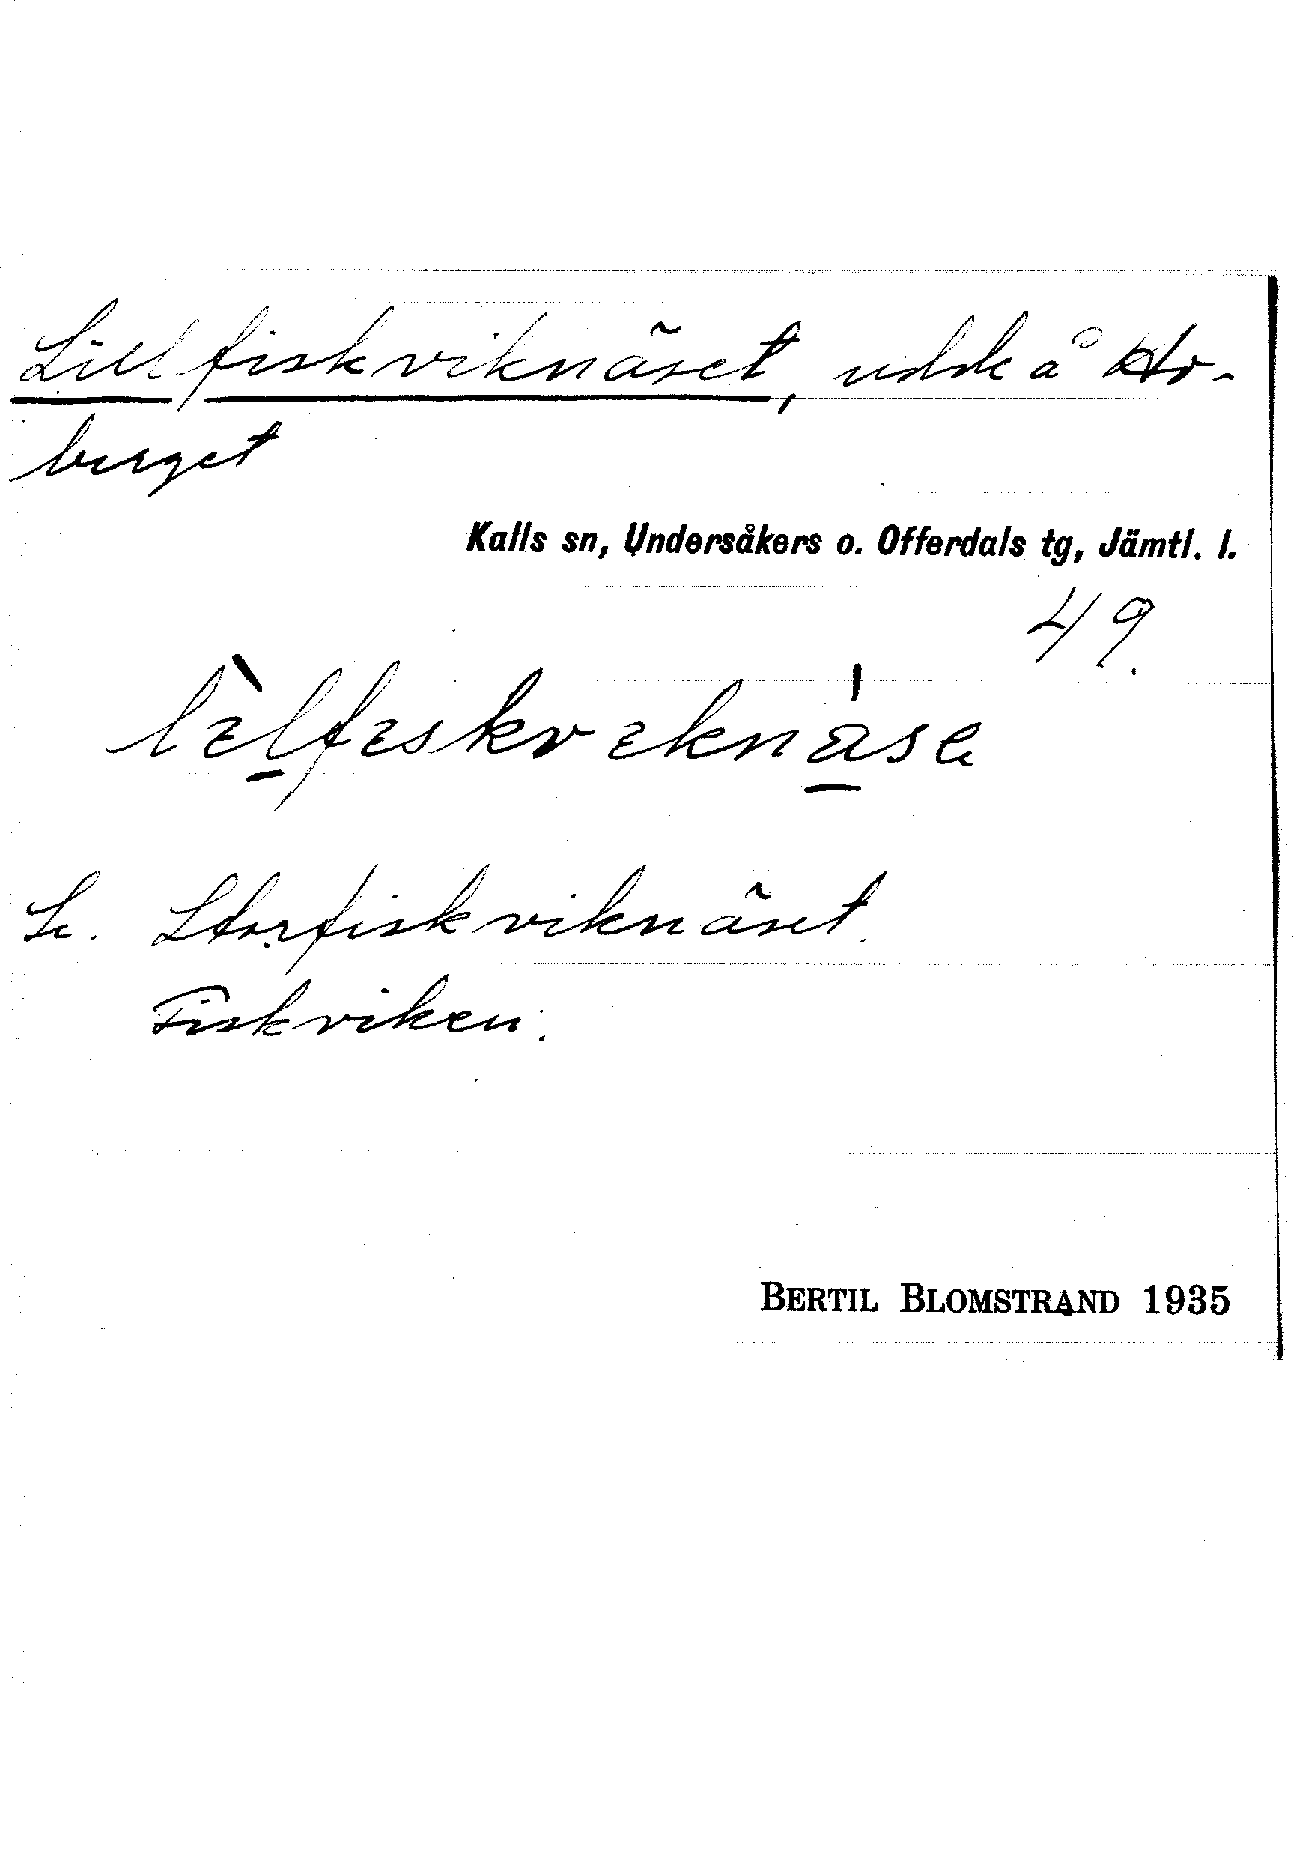 Lillfiskviknäset, udde å Ho-
berget
Kalls sn, Undersåkers o. Offerdals tg, Jämtl. l.
49.
Se. Storfiskviknäset.
Fiskviken.
BERTIL BLOMSTRAND 1935